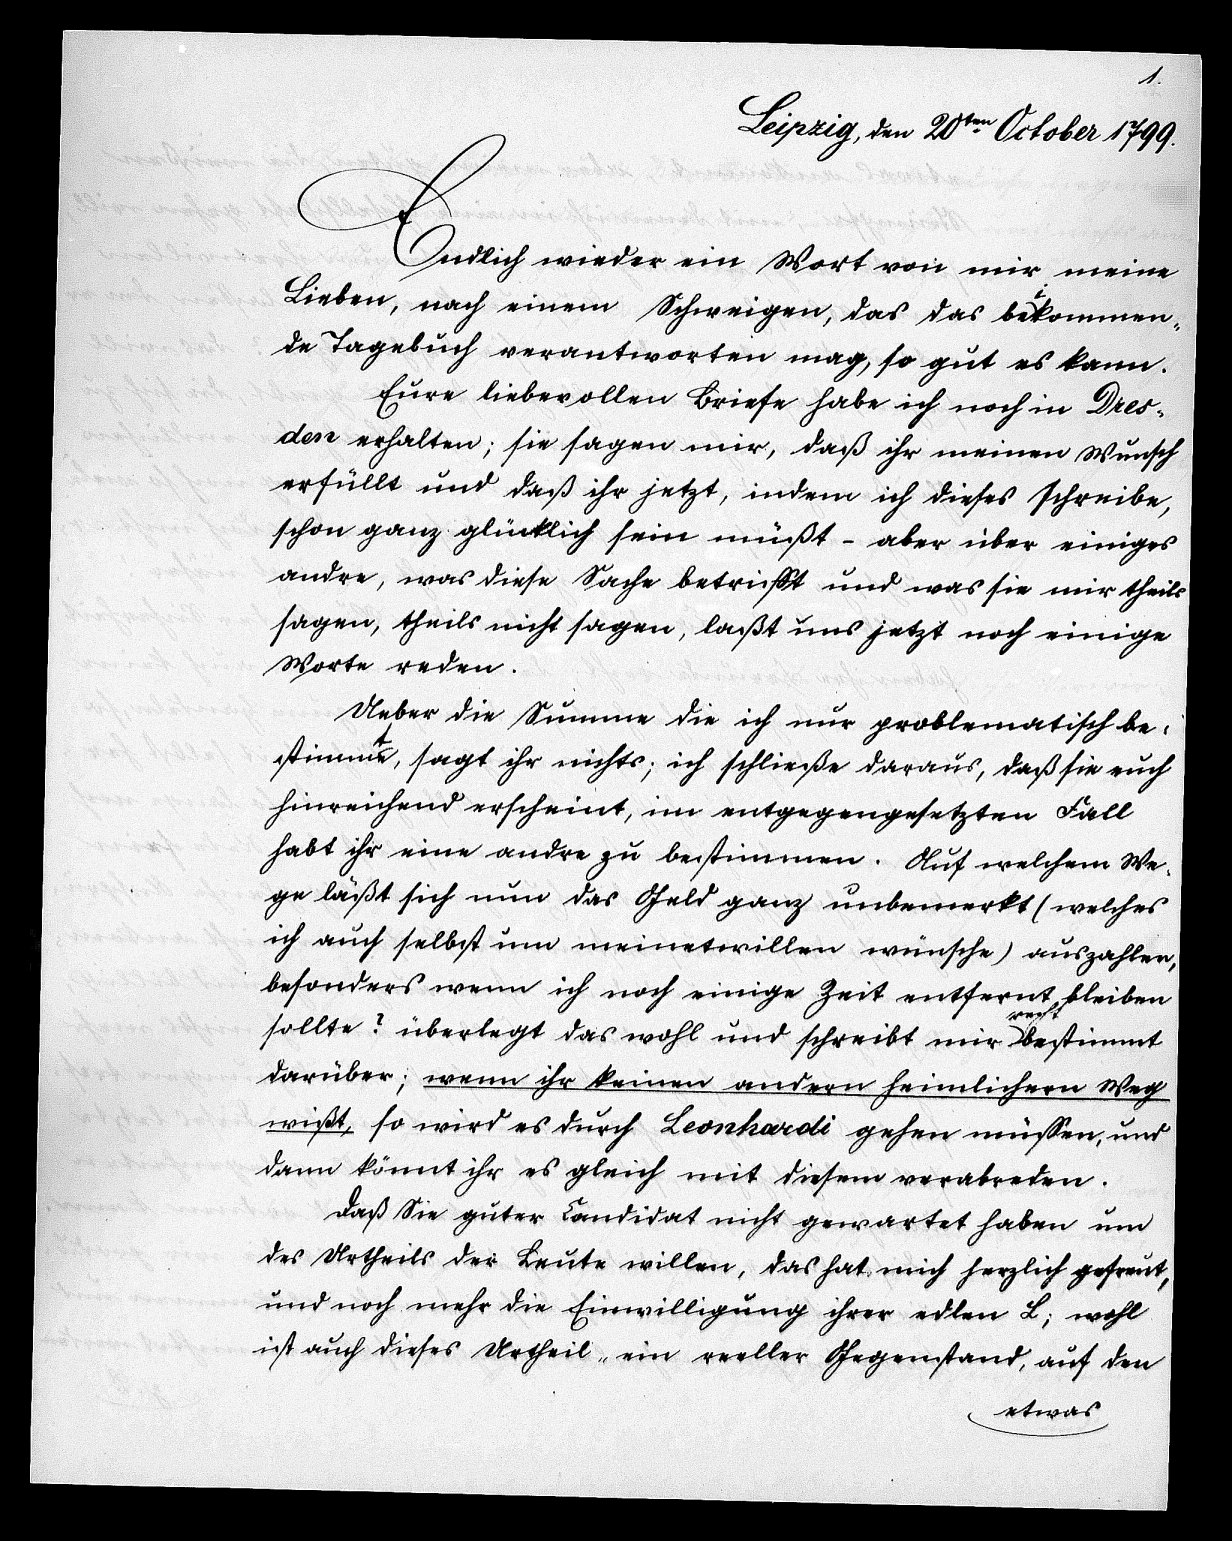 1.
Leipzig, den 20ten October 1799.
Endlich wieder ein Wort von mir meine
Lieben, nach einem Schweigen, das das beikommen-
de Tagebuch verantworten mag, so gut es kann.
Eure liebevollen Briefe habe ich noch in Dres-
den erhalten; sie sagen mir, daß ihr meinen Wunsch
erfüllt und daß ihr jetzt, indem ich dieses schreibe,
schon ganz glücklich sein müßt - aber über einiges
andre, was diese Sache betrifft und was sie mir theils
sagen, theils nicht sagen, laßt uns jetzt noch einige
Worte reden.
Ueber die Summe die ich nur problematisch be-
stimmte, sagt ihr nichts; ich schließe daraus, daß sie euch
hinreichend erscheint, im entgegengesetzten Fall
habt ihr eine andre zu bestimmen. Auf welchem We-
ge läßt sich nun das Geld ganz unbemerkt (welches
ich auch selbst um meinetwillen wünsche) auszahlen,
besonders wenn ich noch einige Zeit entfernt bleiben
sollte? überlegt das wohl und schreibt mir recht bestimmt
darüber; wenn ihr keinen andern heimlichern Weg
wißt, so wird es durch Leonhardi gehen müssen, und
dann könnt ihr es gleich mit diesem verabreden.
Daß Sie guter Candidat nicht gewartet haben um
des Urtheils der Leute willen, das hat mich herzlich gefreut,
und noch mehr die Einwilligung ihrer edlen L; wohl
ist auch dieses Urtheil „ein reeller Gegenstand, auf den
etwas